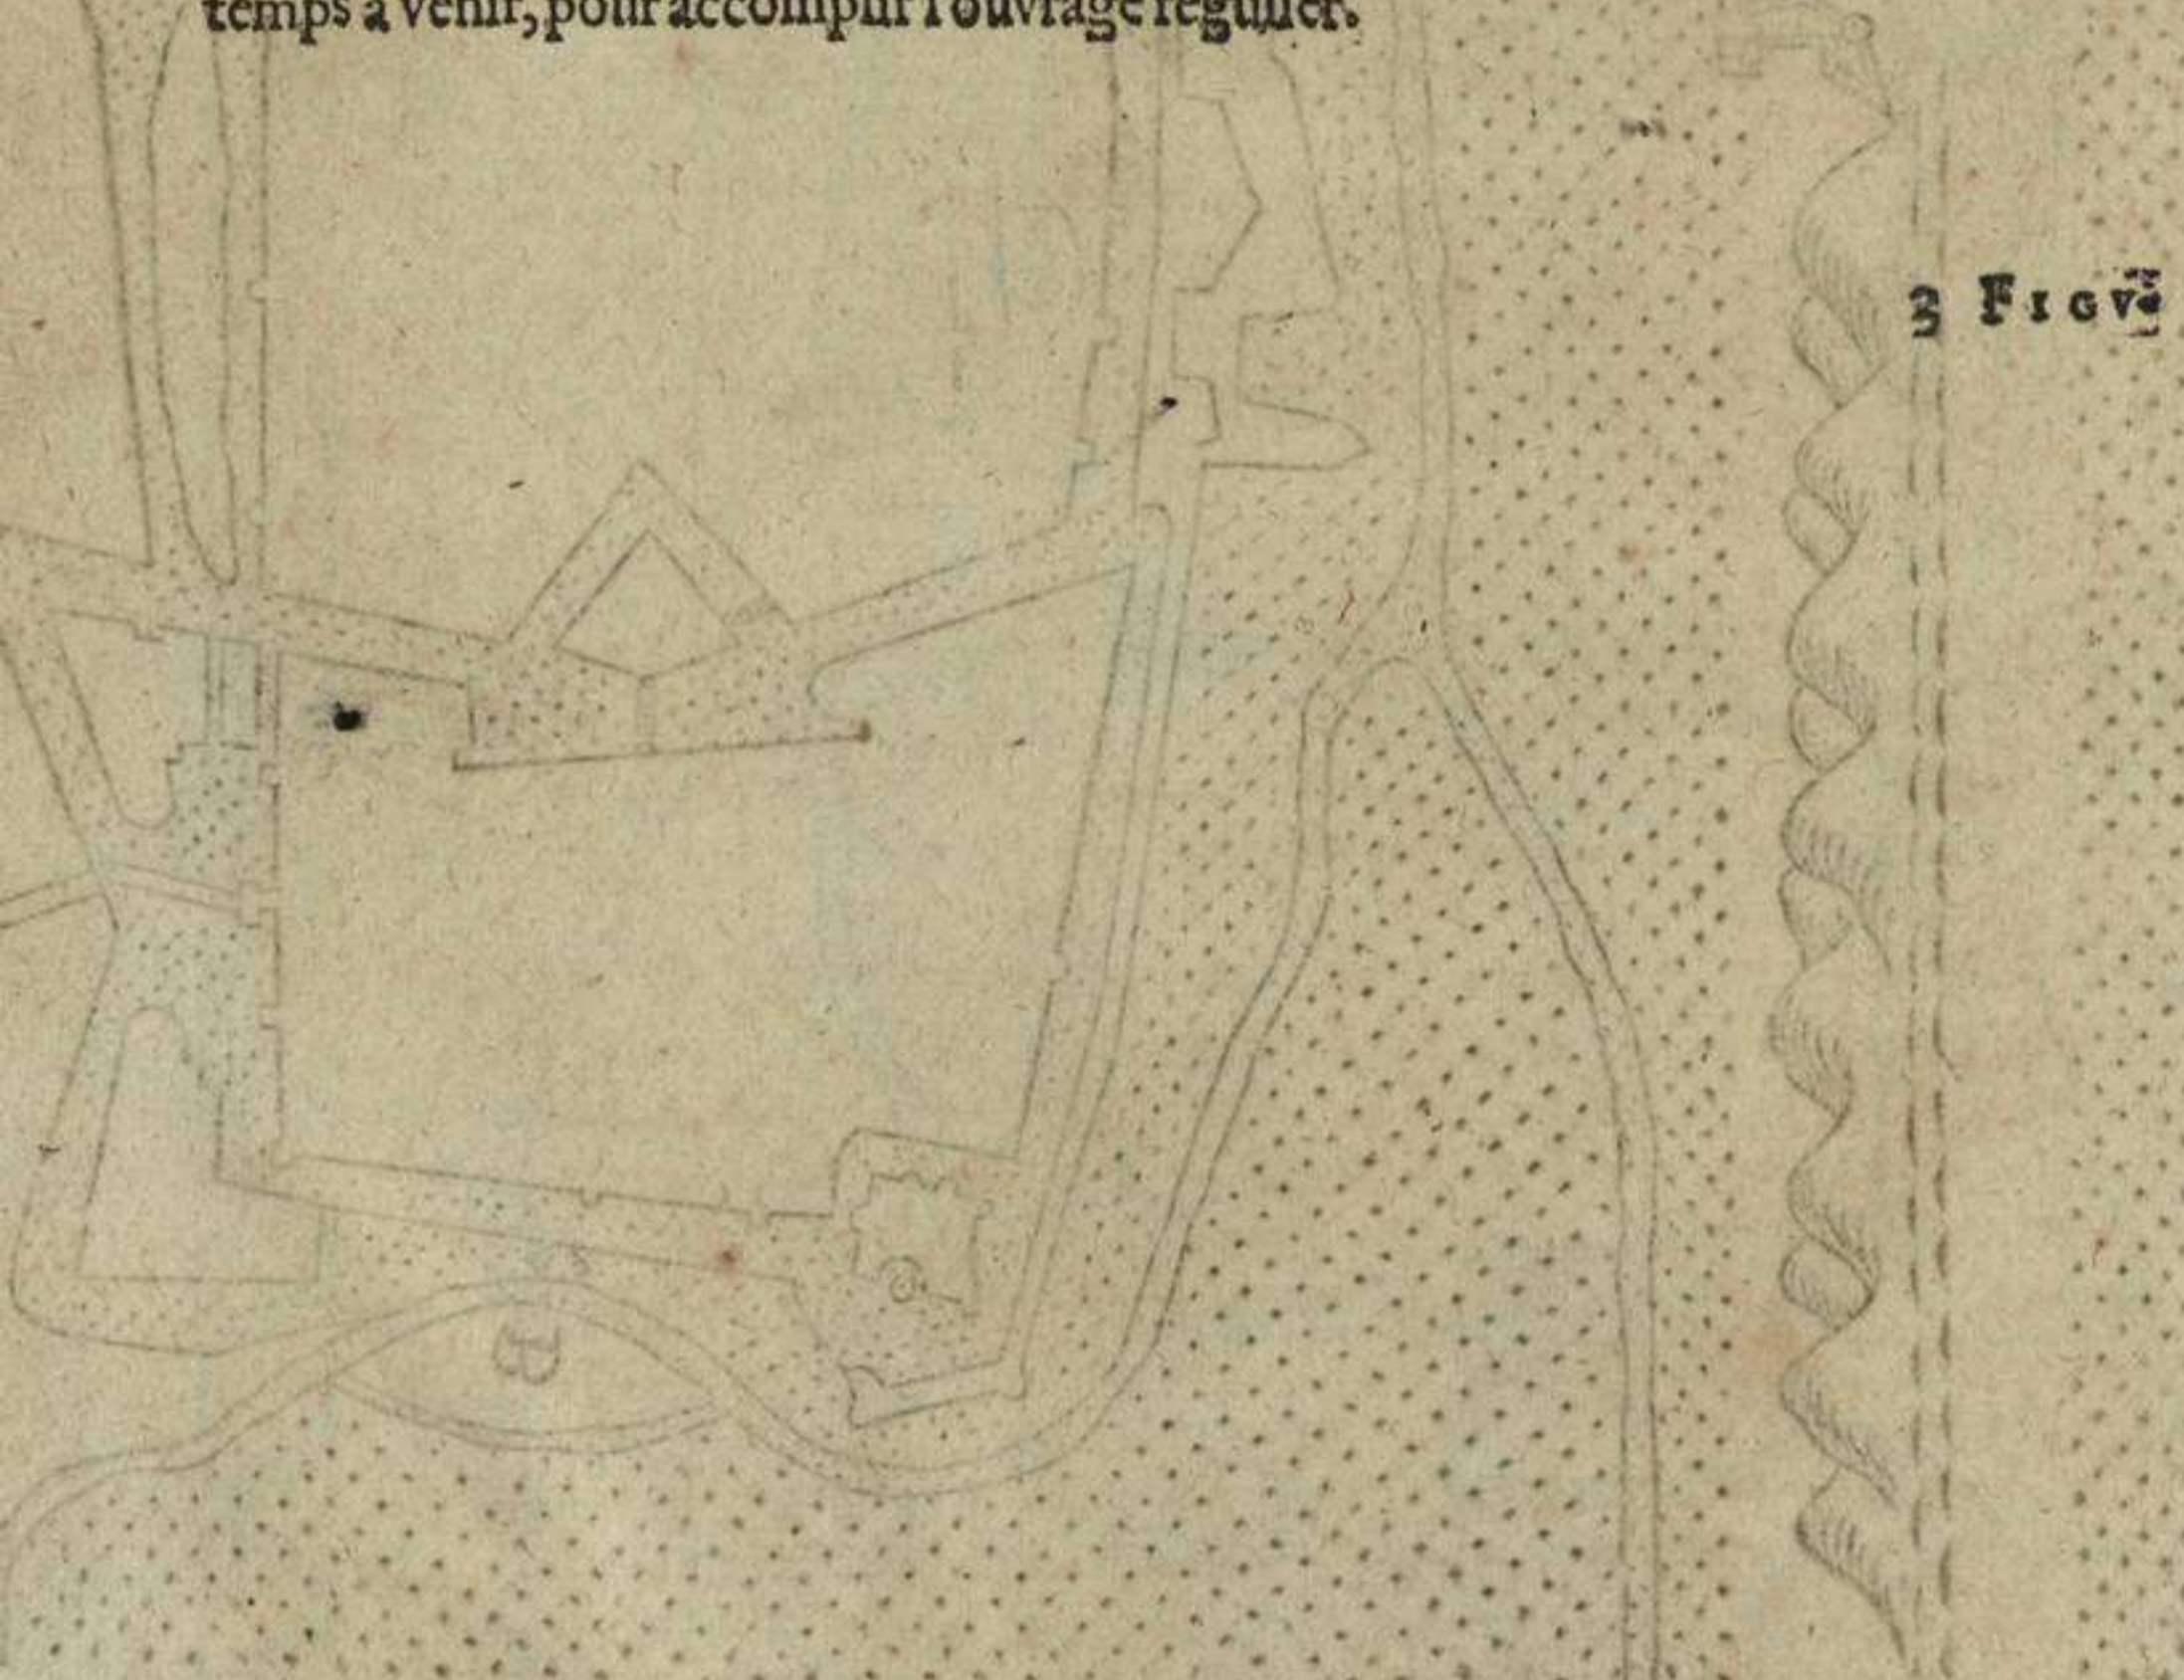 temps à venir, pour accomplir l'ouvrage regulier.
3 FIGV
B